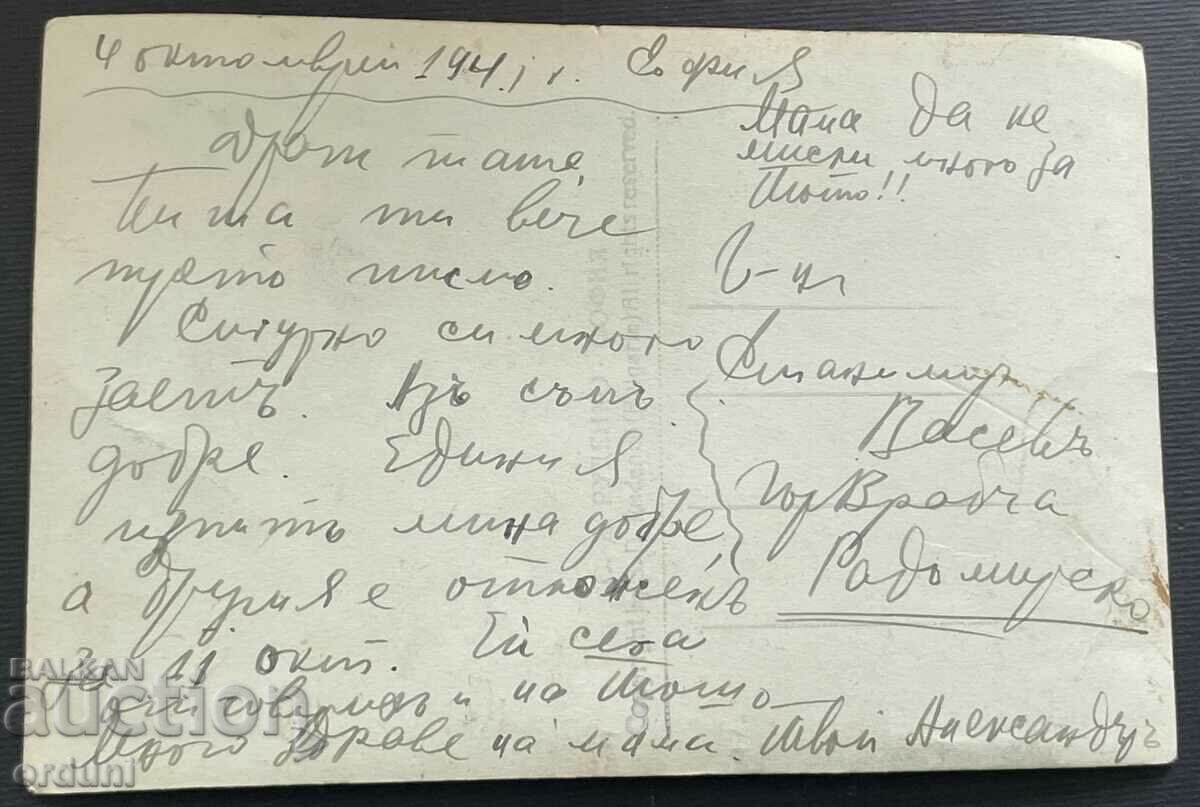 4 октомврий 1941 г. София
Драги тате,
Пиша ти вече
трето писмо.
Сигурно си много
заетъ. Азъ съмъ
добре. Единия
изпитъ мина добре,
а другия е отложенъ
за 11 окт. Ей сега
отговарямъ и на Тошо
Много здраве на мама Твой Александъръ
Мама да не
мисли много за
Тошо!!
Г-нъ
Станимиръ
Василевъ
Гор Врабча
Радомирско
BALKAN
auction
orduni